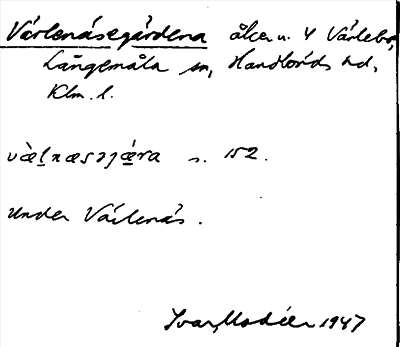 Vårlenäsegärdena åker u. 4 Värlebo,
Långemåla sn, Handbörds hd,
Klm. l.
væ̀l̠næsɔjǽ̠ra s. 152.
Under Värlenäs.
Ivar Modéer 1947